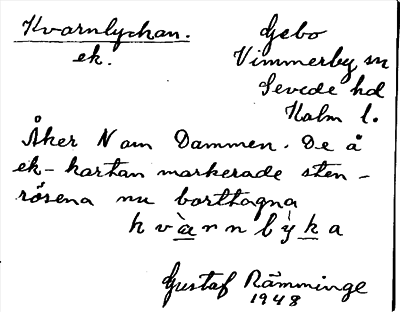 Kvarnlyckan. Gebo
ek. Vimmerby sn
Sevede hd
Kalm l.
Åker N om Dammen. De å
ek-kartan markerade sten-
rösena nu borttagna
hvàrnlỳka
Gustaf Rämminge
1948